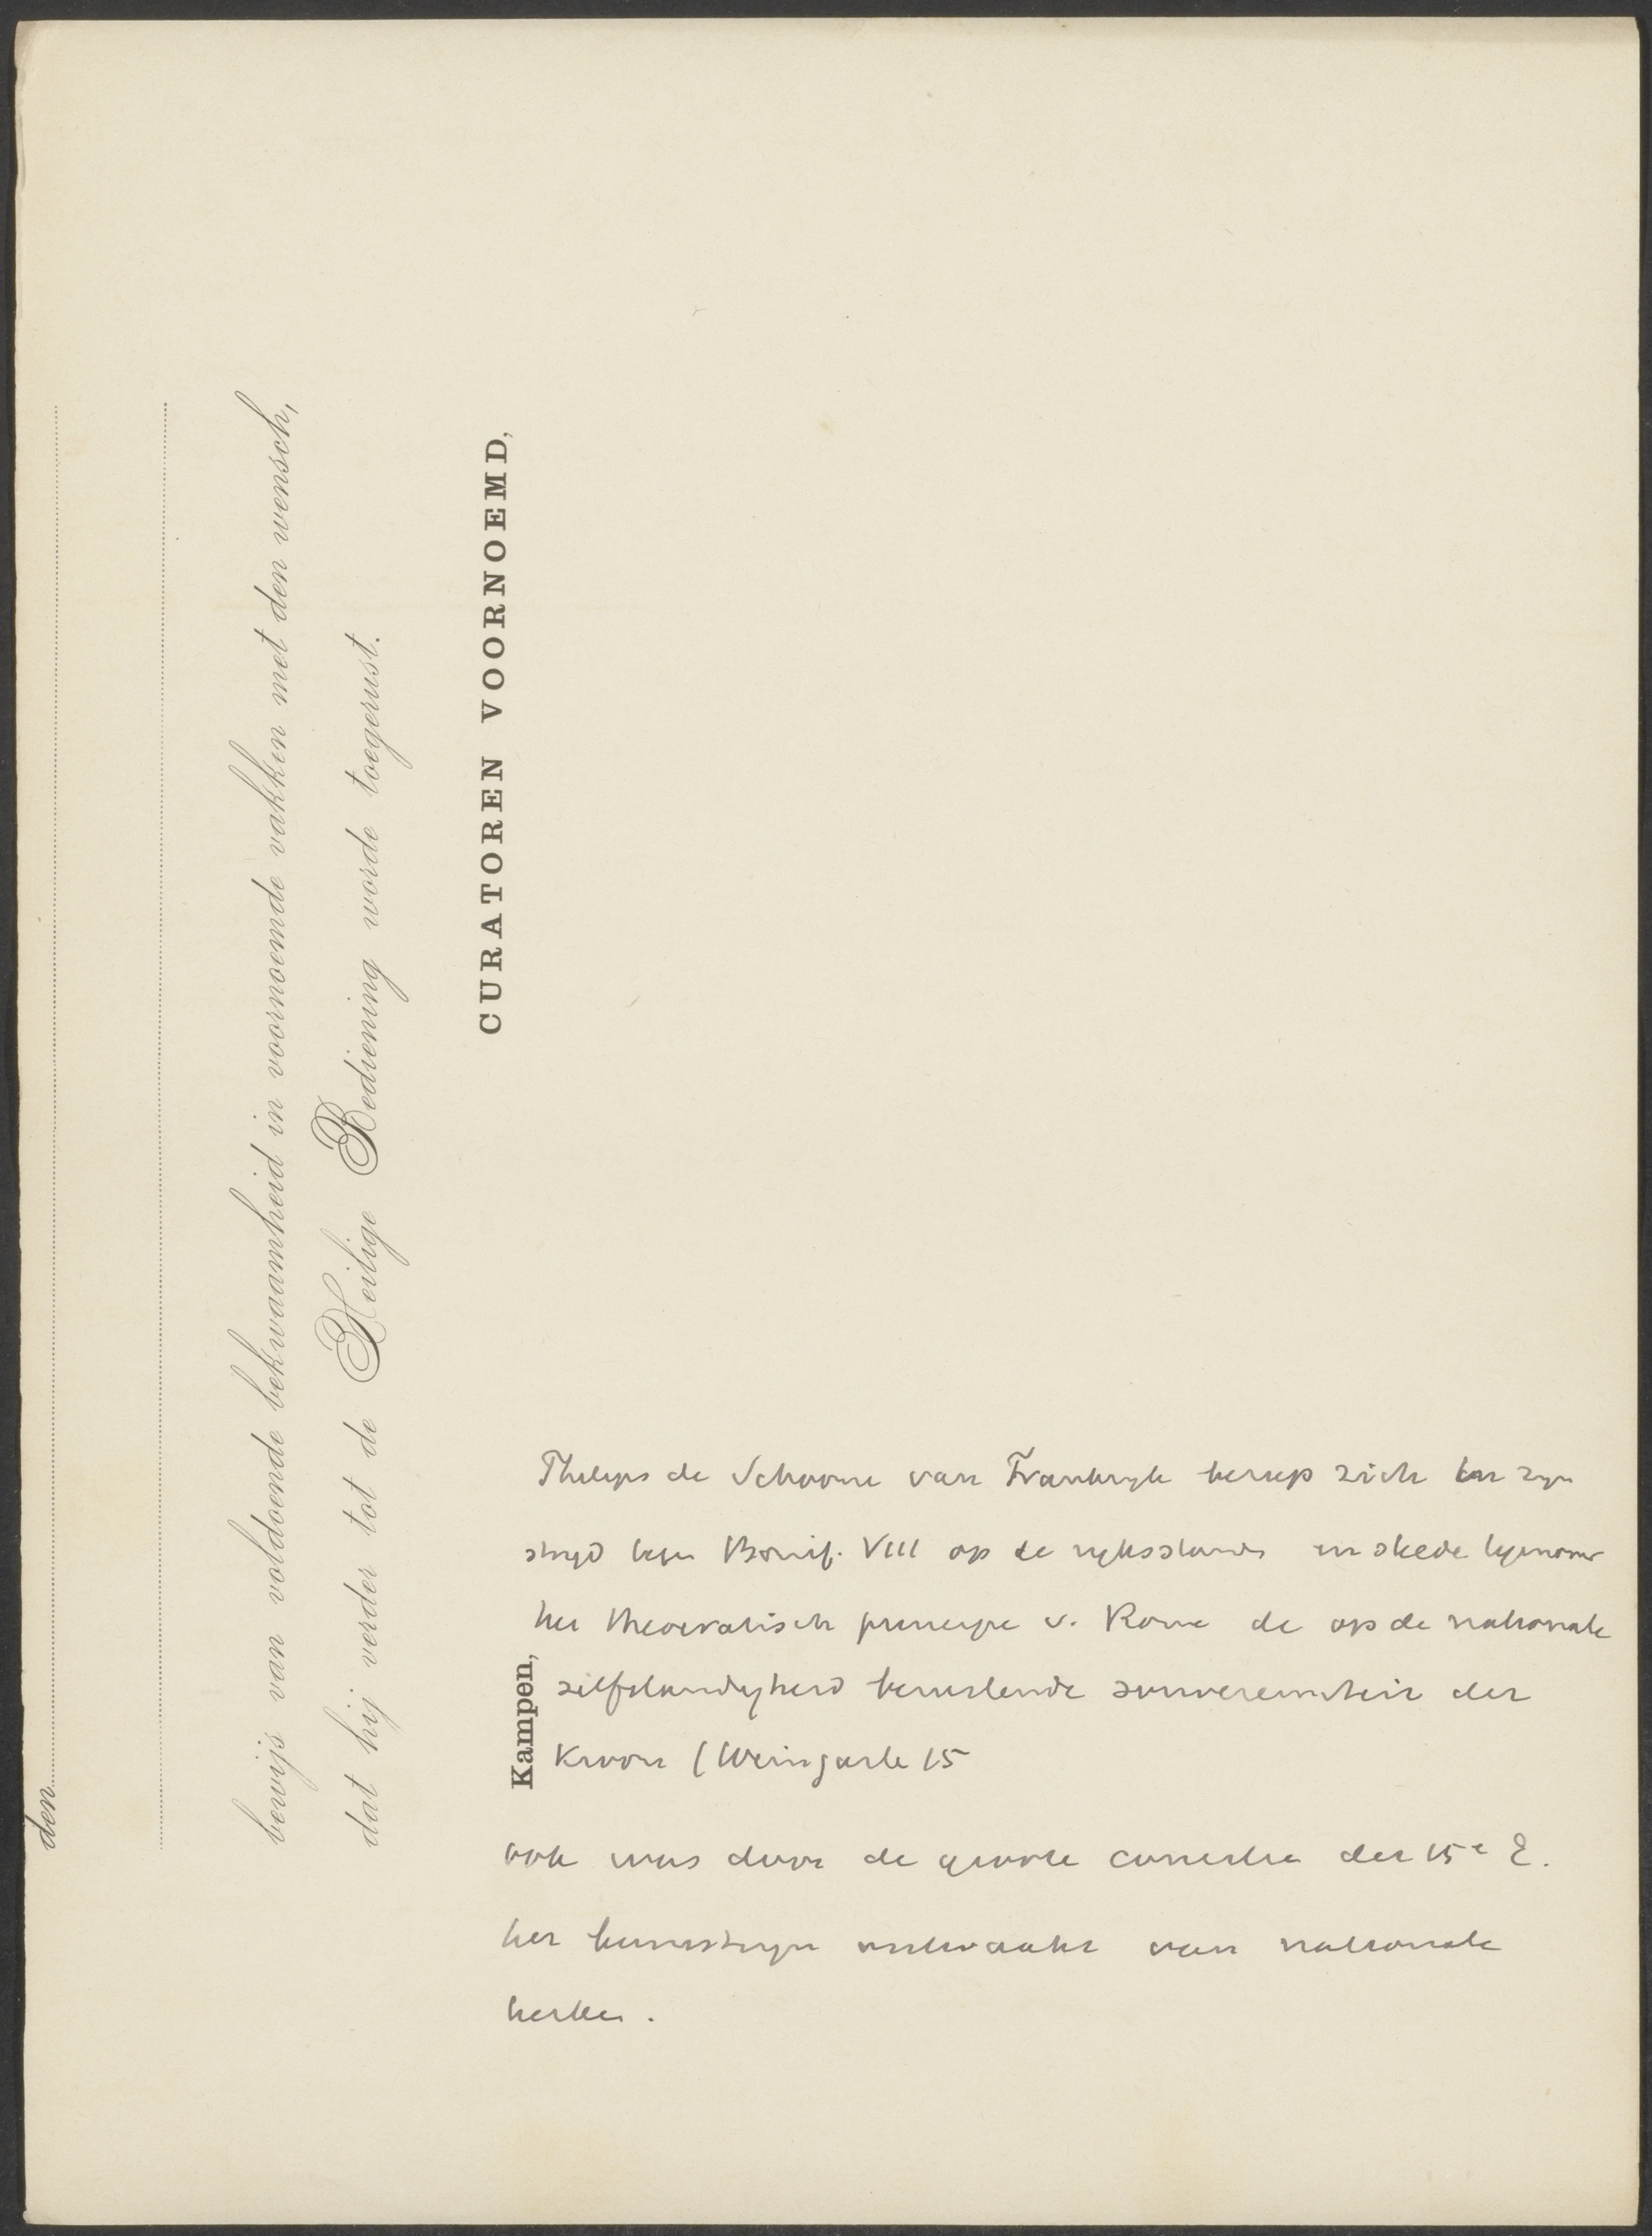 den
bewijs van voldoende bekwaamheid in voornoemde vakken met den wensch,
dat hij verder tot de Heilige Bediening worde toegerust.
CURATOREN VOORNOEMD,
Kampen,
Philips de Schoone van Frankryk beriep zich in zyn
stryd tegen Bonif. VIII op de ryksstanden en stelde tegenover
het theocratisch principe v. Rome de op de nationale
zelfstandigheid berustende souvereiniteit der
Kroon (Weingarte 15
ook was door de groote concilies der 15e E.
het bewustzyn ontwaakt van nationale
kerken.